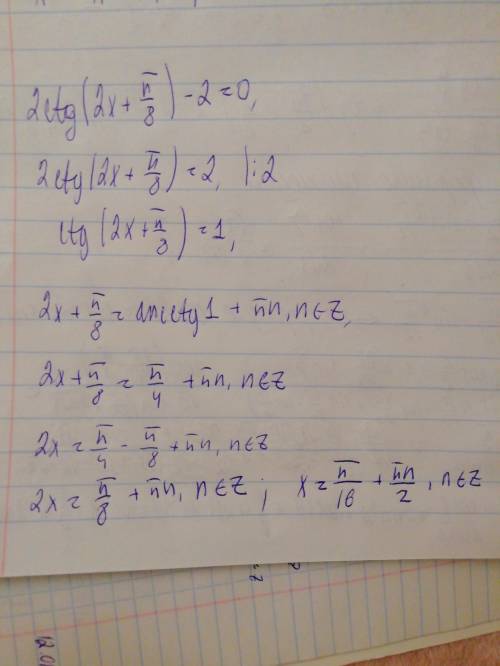 2ctg(2x + π/8) - 2 = 0,
2ctg(2x + π/8) = 2, |:2
ctg(2x + π/8) = 1,
2x + π/8 = arcctg 1 + πn, n∈Z,
2x + π/8 = π/4 + πn, n∈Z
2x = π/4 - π/8 + πn, n∈Z
2x = π/8 + πn, n∈Z; x = π/16 + πn/2, n∈Z